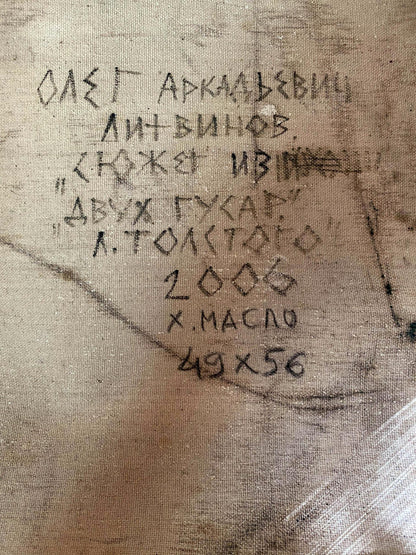 ОЛЕГ АРКАДЬЕВИЧ
ЛИТВИНОВ.
"СЮЖЕТ ИЗ
"ДВУХ ГУСАР."
"Л. ТОЛСТОГО"
2006
Х. МАСЛО
49X56